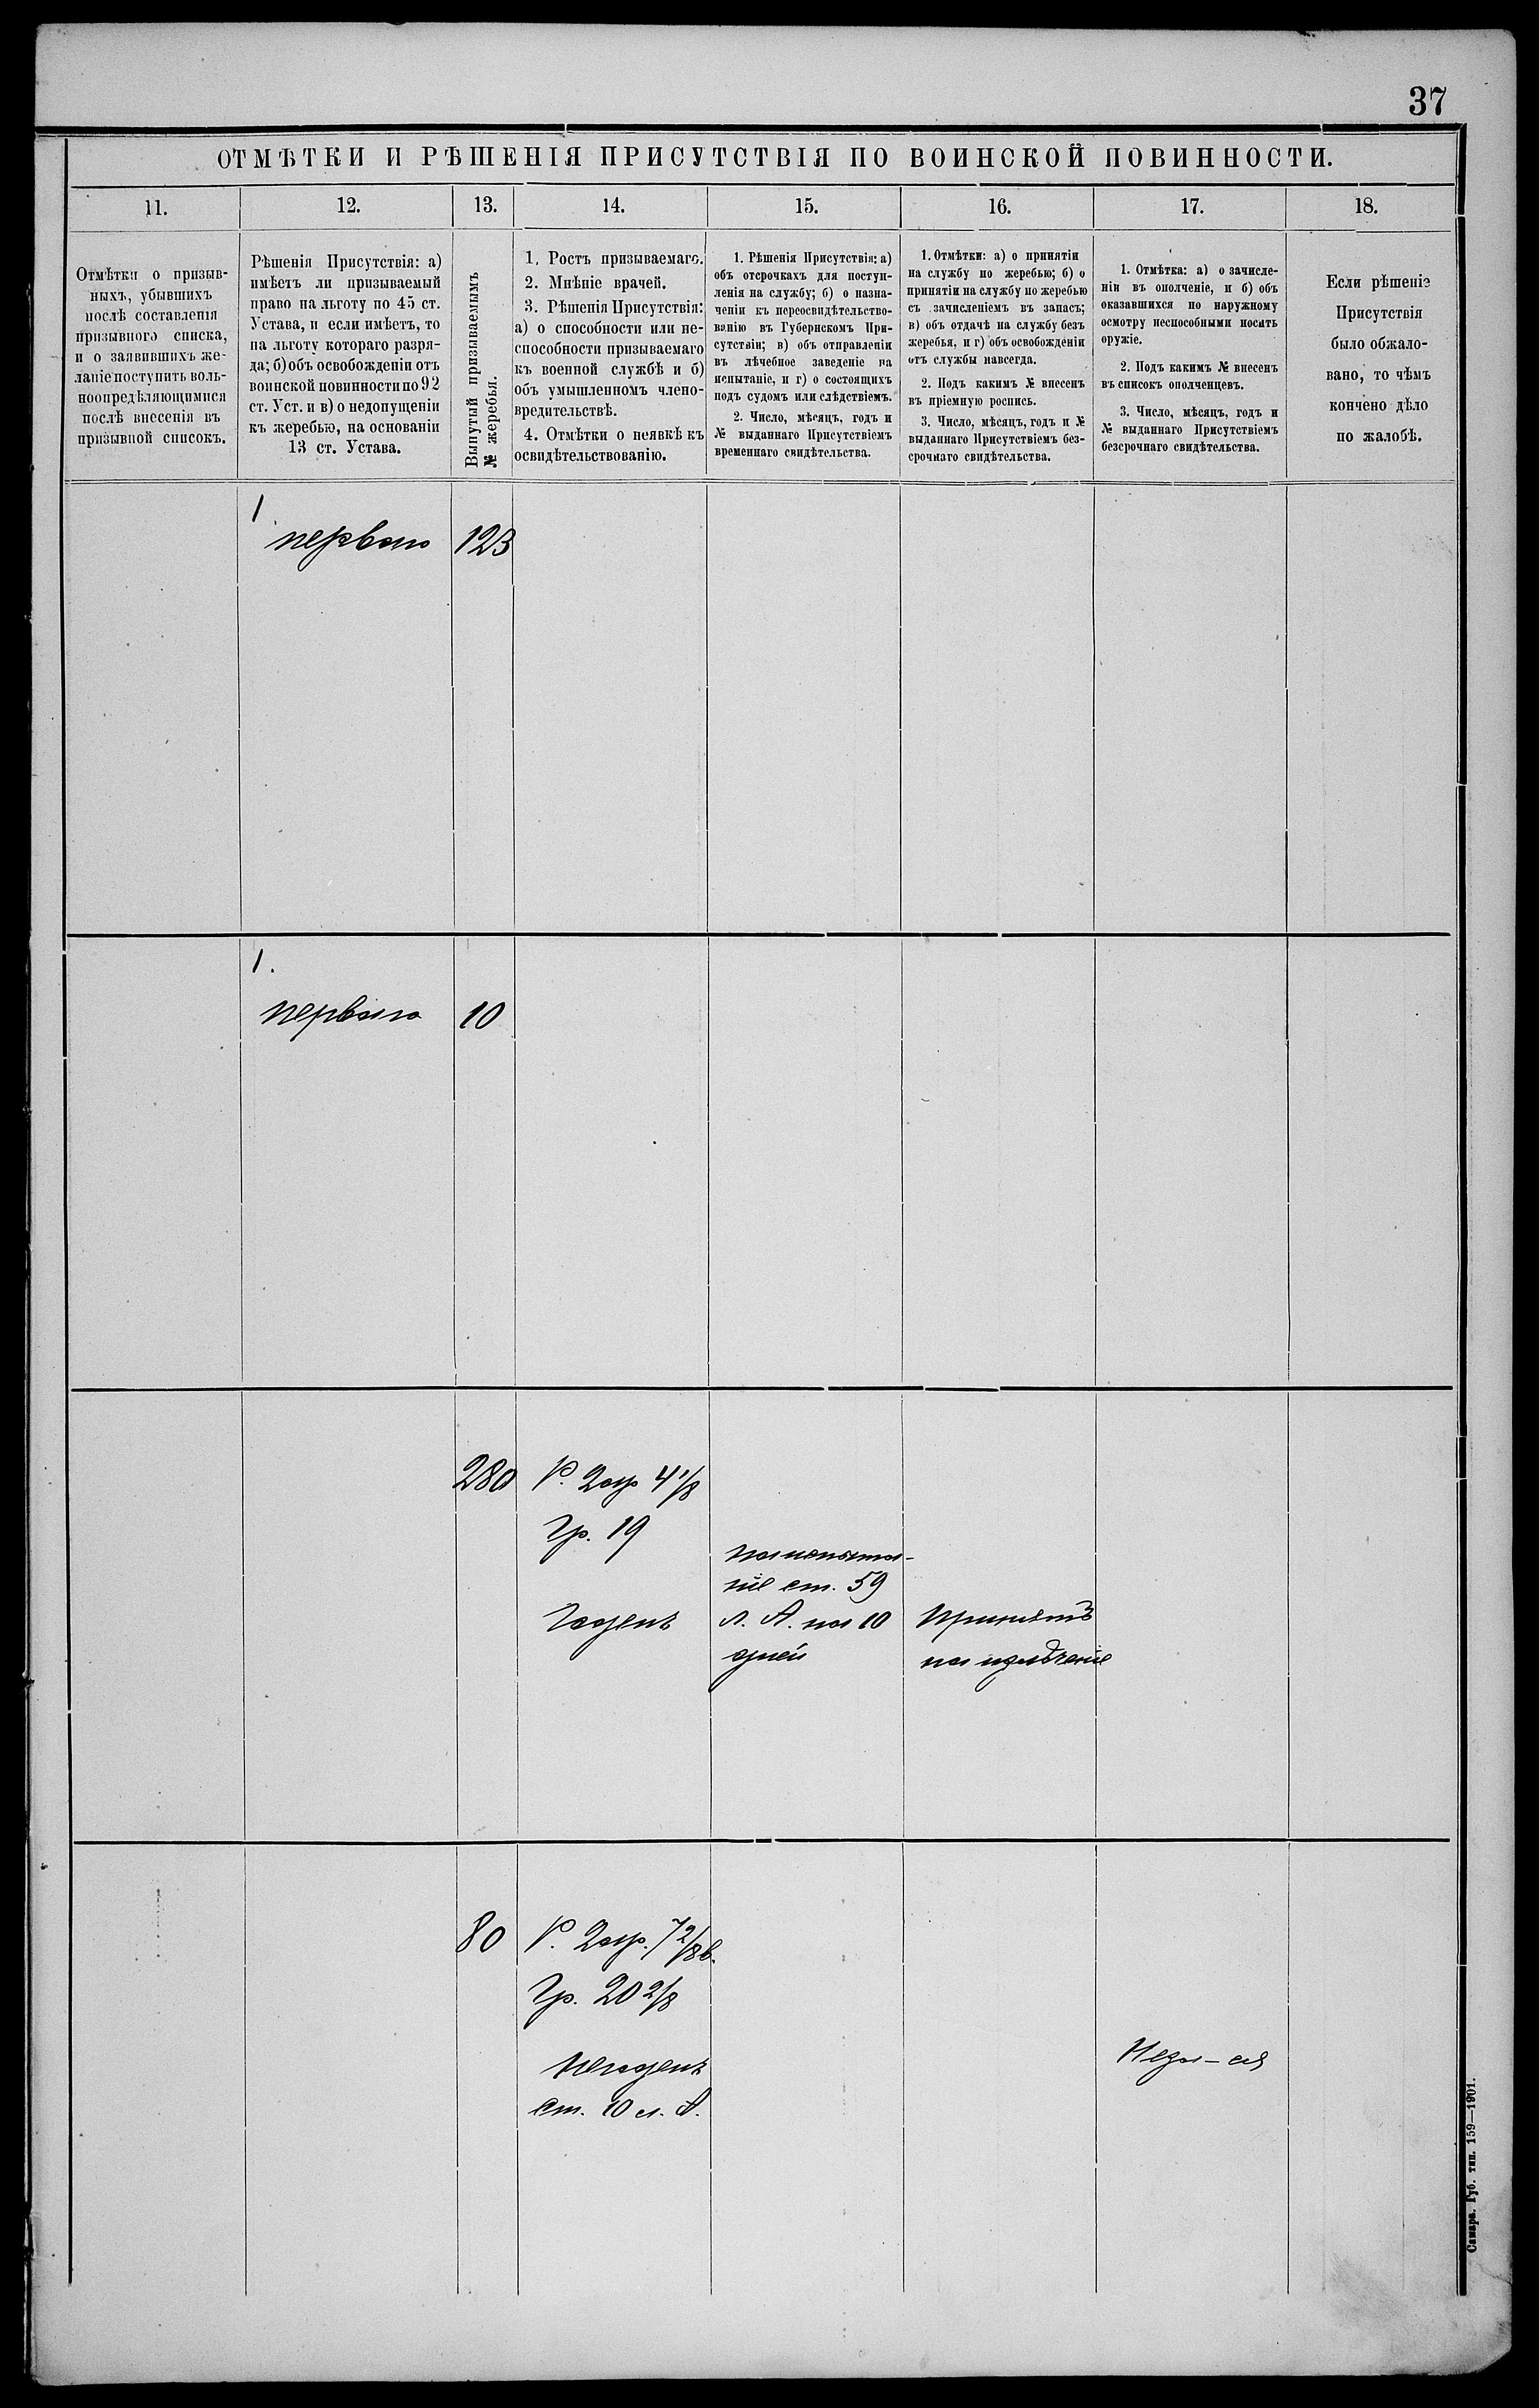 37
ОТМѢТКИ И РѢШЕНІЯ ПРИСУТСТВІЯ ПО ВОИНСКОЙ ПОВИННОСТИ.
11.
12.
13.
14.
15.
16.
17.
18.
Отмѣтки о призыв-
ныхъ, убывшихъ
послѣ составленія
призывного списка,
и о заявившихъ же-
ланіе поступить воль-
ноопредѣляющимися
послѣ внесенія въ
призывной списокъ.
Рѣшенія Присутствія: а)
имѣетъ ли призываемый
право на льготу по 45 ст.
Устава, и если имѣетъ, то
на льготу котораго разря-
да; б) объ освобожденіи отъ
воинской повинности по 92
ст. Уст. и в) о недопущеніи
къ жеребью, на основаніи
13 ст. Устава.
Вынутый призываемымъ
№ жеребья.
1. Ростъ призываемаго.
2. Мнѣніе врачей.
3. Рѣшенія Присутствія:
а) о способности или не-
способности призываемаго
къ военной службѣ и б)
объ умышленномъ члено-
вредительствѣ.
4. Отмѣтки о неявкѣ къ
освидѣтельствованію.
1. Рѣшенія Присутствія: а)
объ отсрочкахъ для поступ-
ленія на службу; б) о назна-
ченіи къ переосвидѣтельство-
ванію въ Губернскомъ При-
сутствіи; в) объ отправленіи
въ лѣчебное заведеніе на
испытаніе, и г) о состоящихъ
подъ судомъ или слѣдствіемъ.
2. Число, мѣсяцъ, годъ и
№ выданнаго Присутствіемъ
временнаго свидѣтельства.
1. Отмѣтки: а) о принятіи
на службу по жеребью; б) о
принятіи на службу по жеребью
съ зачисленіемъ въ запасъ;
в) объ отдачѣ на службу безъ
жеребья, и г) объ освобожденіи
отъ службы навсегда.
2. Подъ какимъ № внесенъ
въ пріемную роспись.
3. Число, мѣсяцъ, годъ и №
выданнаго Присутствіемъ без-
срочнаго свидѣтельства.
1. Отмѣтка: а) о зачисле-
ніи въ ополченіе, и б) объ
оказавшихся по наружному
осмотру неспособными носить
оружіе.
2. Подъ какимъ № внесенъ
въ списокъ ополченцевъ.
3. Число, мѣсяцъ, годъ и
№ выданнаго Присутствіемъ
безсрочнаго свидѣтельства.
Если рѣшеніе
Присутствія
было обжало-
вано, то чѣмъ
кончено дѣло
по жалобѣ.
1
перваго 123
1.
перваго 10
280 Р. 2 ар 4 1/8
Гр. 19
Годенъ
на испыта-
ніе ст. 59
л. А. на 10
дней
Принятъ
на излѣченіе
80 Р. 2 ар. 7 2/8 в.
Гр. 20 2/8
Негоденъ
ст. 10 л. А.
Самара. Губ. тип. 159—1901.